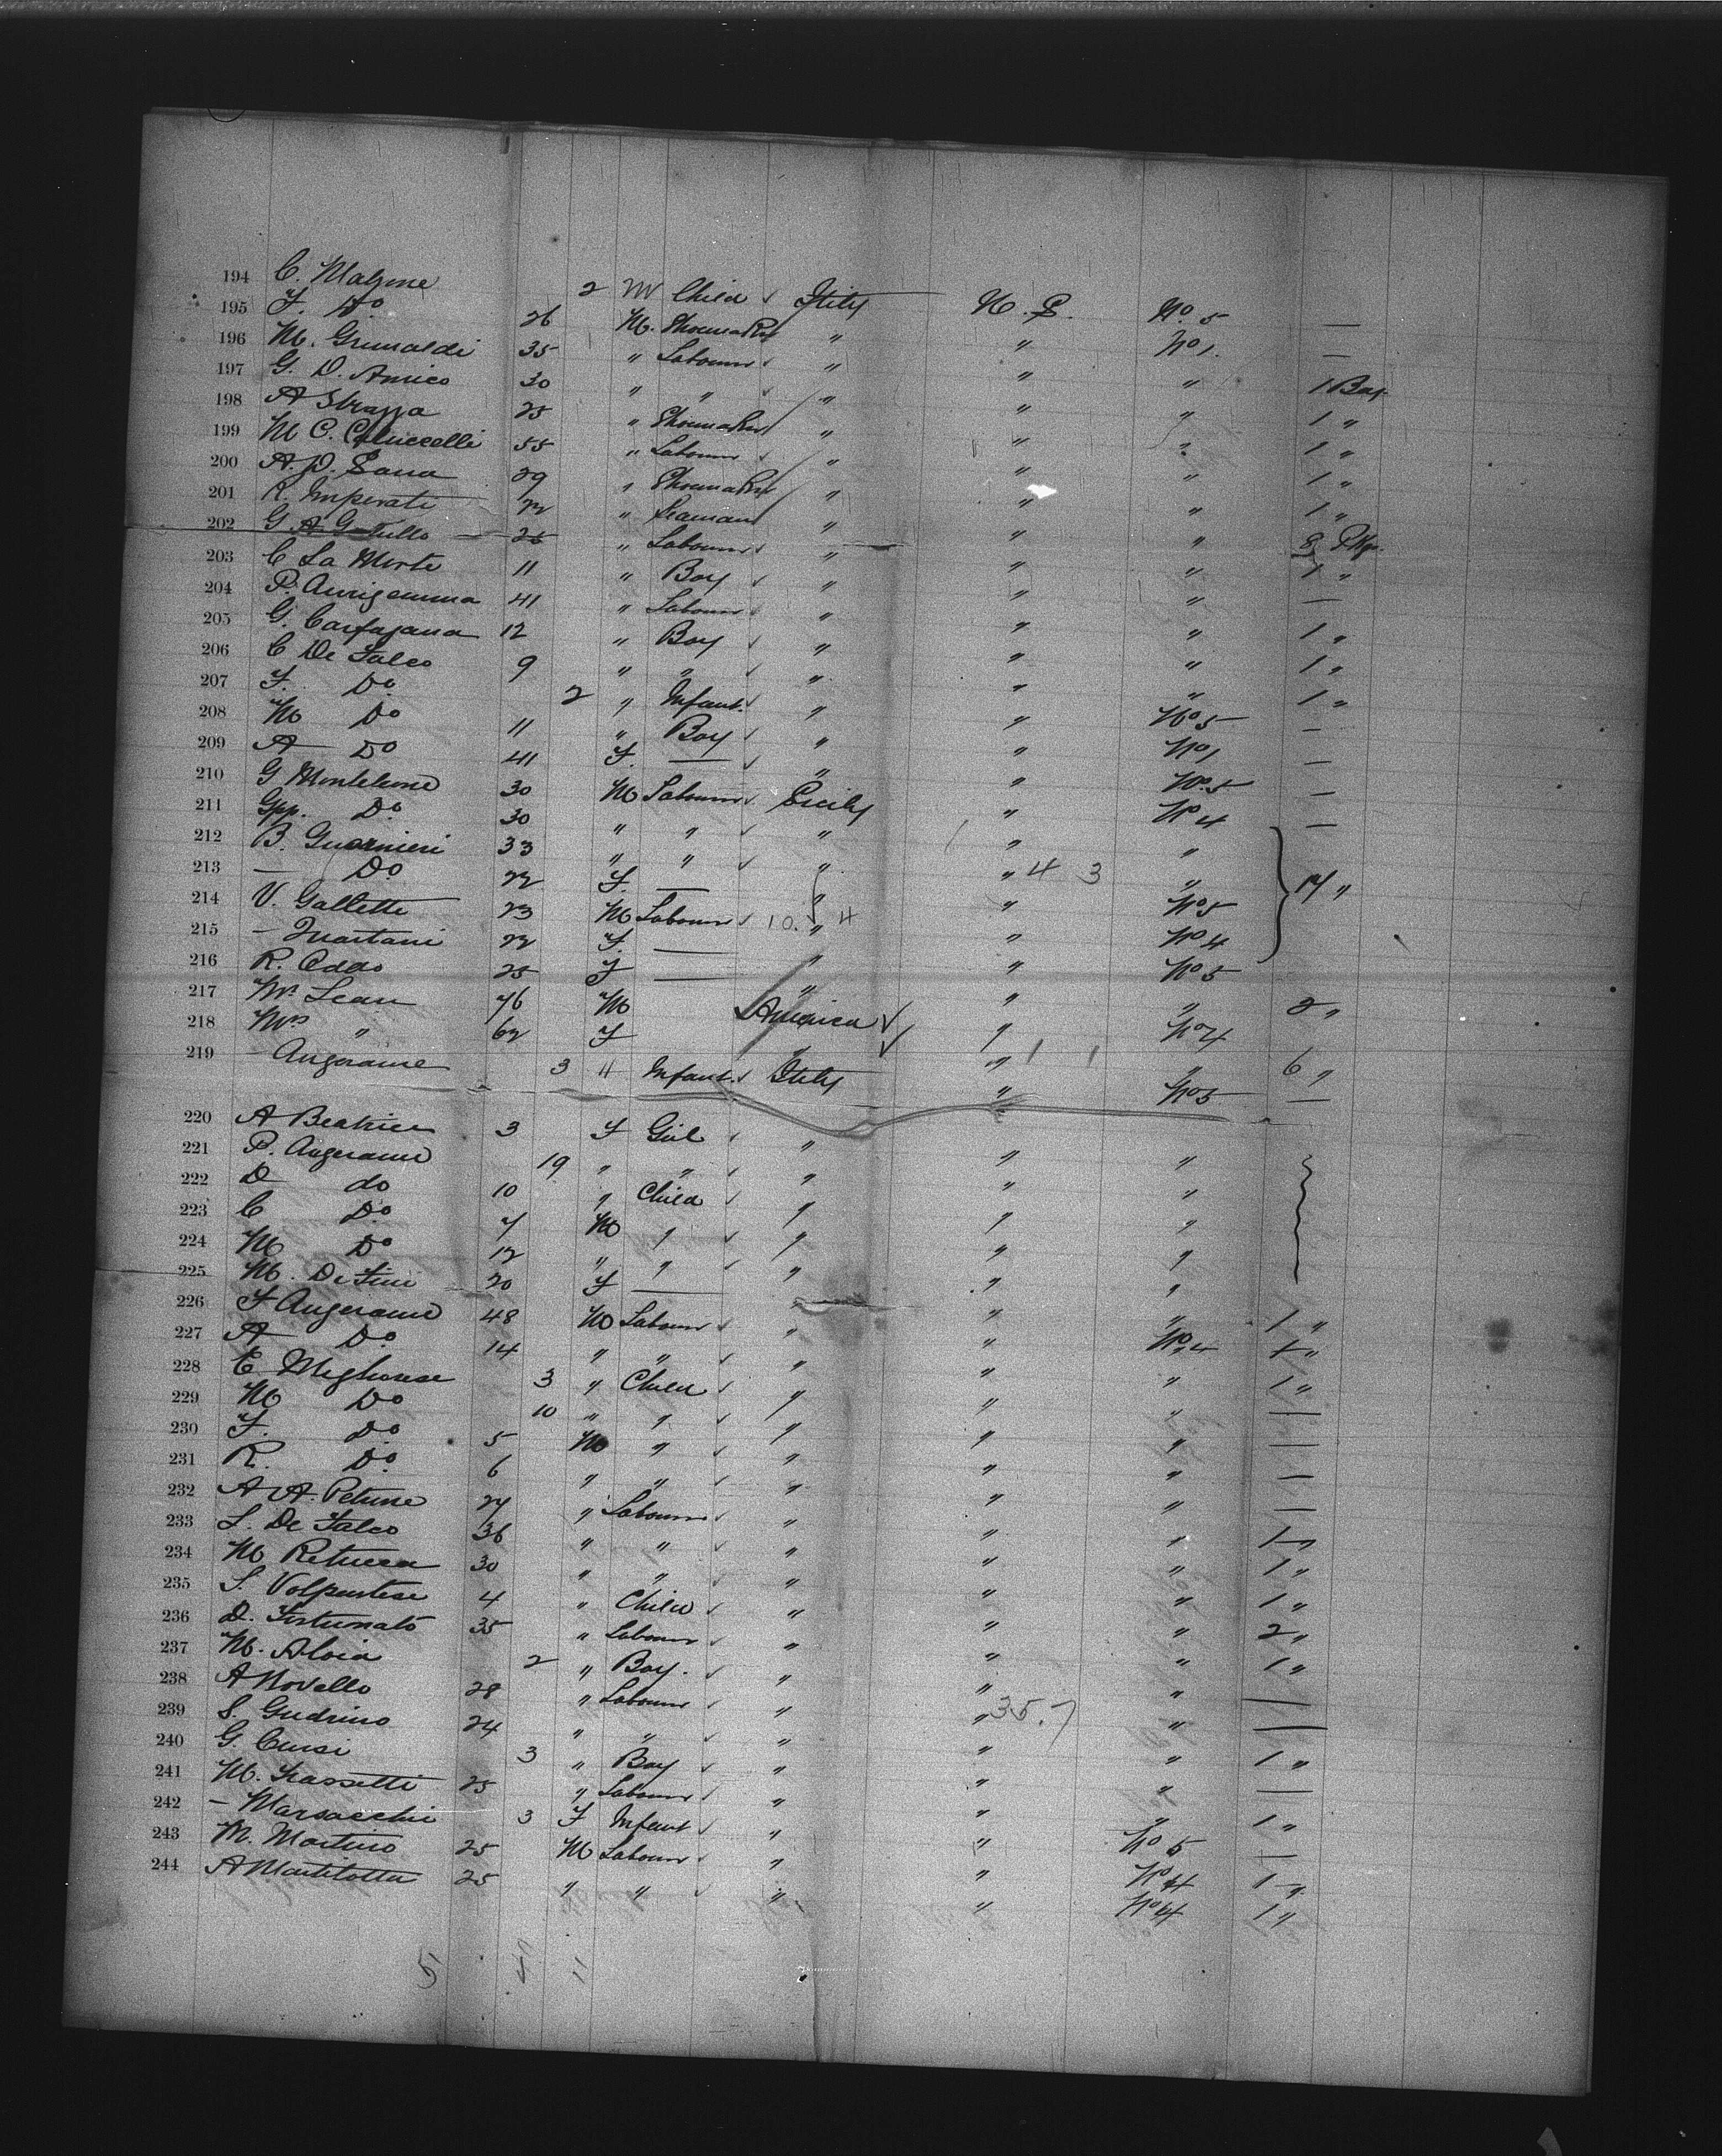 194 C. Malzone 2 M Child ✓ Itily N. S. No. 5 —
195 F. Do 26 M. Shoemaker " " No 1. —
196 M. Grimaldi 35 " Labourer ✓ " " " 1 Bag
197 G. D. Amico 30 " " ✓ " " " 1 "
198 A Strazza 25 " Shoemaker " " " 1 "
199 M C. Colluccelli 55 " Labourer ✓ " " " 1 "
200 A. D. Sana 29 " Shoemaker " " " 1 "
201 R. Imperati 22 " Seaman " " " 8 Pkgs.
202 G. A. G Tullo 26 " Labourer ✓ " " " 1 "
203 C La Morte 11 " Boy ✓ " " " —
204 P. Aurigemma 41 " Labourer ✓ " " " 1 "
205 G. Carfagana 12 " Boy ✓ " " " 1 "
206 C De Falco 9 " " ✓ " " " 1 "
207 F. Do 2 " Infant. ✓ " " No 5 —
208 M Do 11 " Boy ✓ " " No 1 —
209 A Do 41 F. — ✓ " " No. 5 —
210 G Monteleone 30 M Labourer ✓ Sicily " No 4 —
211 Gpp. Do 30 " " ✓ " " "
212 B. Guarnieri 33 " " ✓ " " 4 3 "
213 — Do 22 F. — " " No 5 17 "
214 V. Galletti 23 M Labourer ✓ 10. 4 " " No 4
215 - Quartani 22 F. — " " No 5
216 R. Oddo 25 F — " " " 2 "
217 Mr Lean 76 M America ✓ " No 4
218 Mrs " 62 F " ✓ " 1 1 " 6 "
219 - Augerame 3 " Infant. ✓ Itily " No 5 —
220 A Beatrice 3 F Girl ✓ " " "
221 P. Augerame 19 " " ✓ " " "
222 D do 10 " Child ✓ " " "
223 C Do 7 M " ✓ " " "
224 M Do 12 " " ✓ " " "
225 M. De Fini 20 F — " " " 1 "
226 F Augerame 48 M Labourer ✓ " " No 4 1 "
227 A Do 14 " " ✓ " " " 1 "
228 C Miglionse 3 " Child ✓ " " " —
229 M Do 10 " " " " " —
230 F. Do 5 M " ✓ " " " —
231 R. Do 6 " " ✓ " " " —
232 A A. Petrine 27 " Labourer ✓ " " " 1 "
233 L. De Falco 36 " " ✓ " " " 1 "
234 M Retucca 30 " " ✓ " " " 1 "
235 S. Volpentese 4 " Child ✓ " " " 2 "
236 D. Fortunato 35 " Labourer ✓ " " " 1 "
237 M. Aloia 2 " Boy. ✓ " " " —
238 A Novello 28 " Labourer ✓ " " 35. 7 " —
239 S. Gudrino 24 " " ✓ " " " 1 "
240 G. Cursi 3 " Boy ✓ " " " —
241 M. Frassetti 25 " Labourer ✓ " " " 1 "
242 - Marsacchi 3 F Infant ✓ " " No 5 —
243 M. Martino 25 M Labourer ✓ " " No 4 1 "
244 A Martilotta 25 " " ✓ " " No 4 1 "
5 11